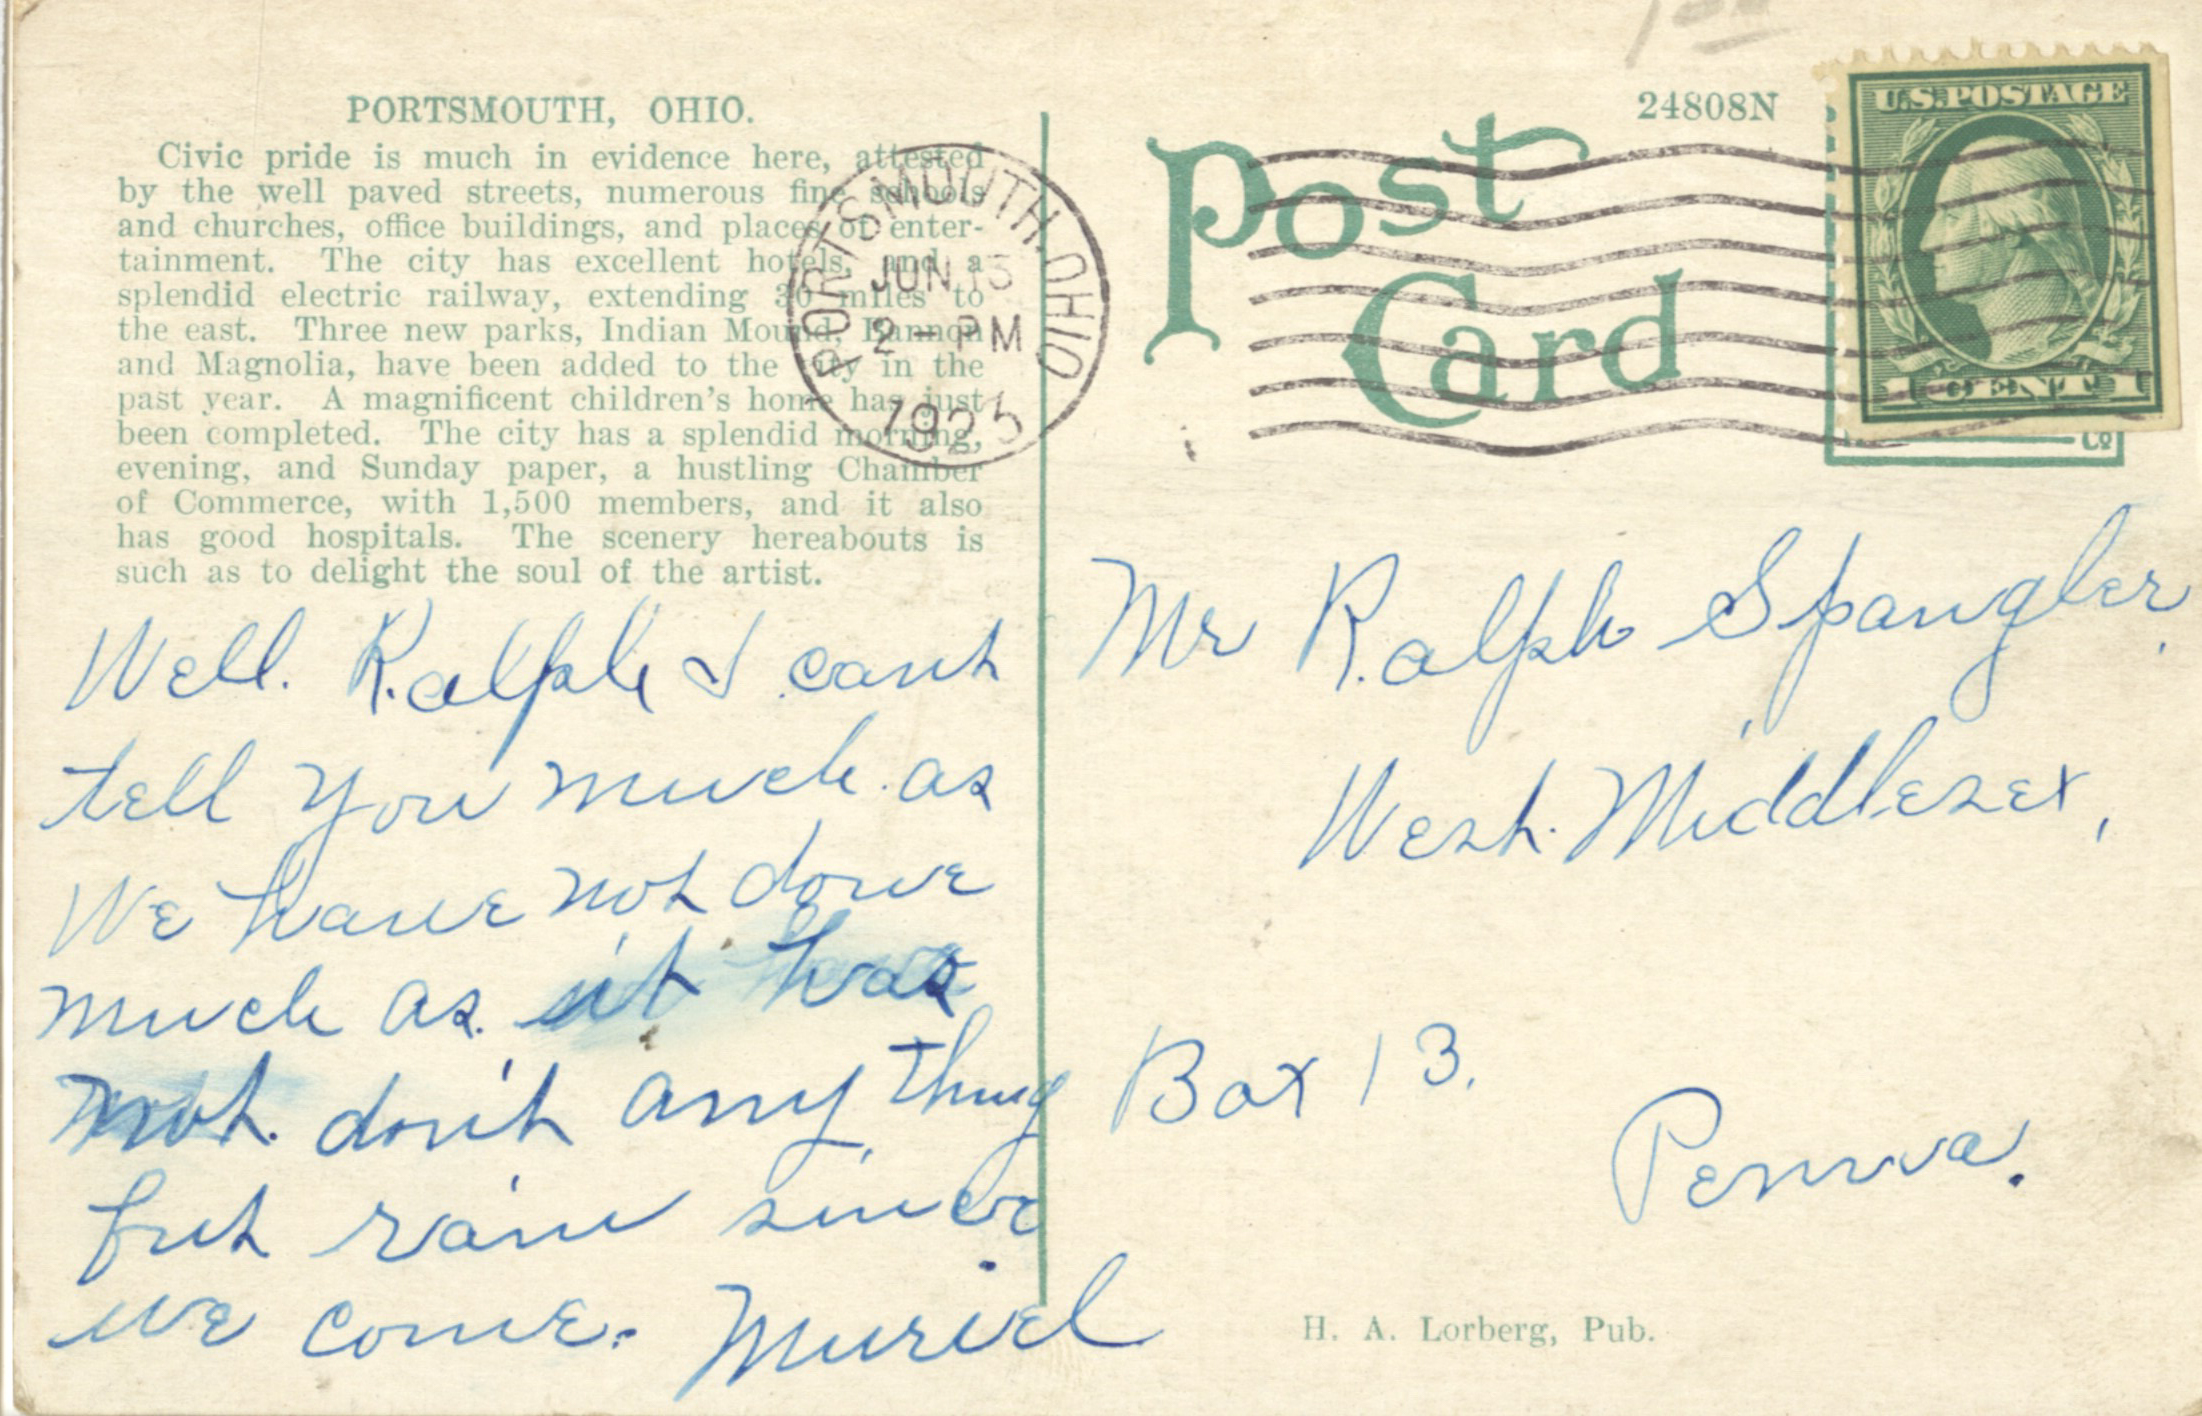 PORTSMOUTH, OHIO.
Civic pride is much in evidence here, attested
by the well paved streets, numerous fine schools
and churches, office buildings, and places of enter-
tainment. The city has excellent hotels, and a
splendid electric railway, extending 30 miles to
the east. Three new parks, Indian Mound, Mannon
and Magnolia, have been added to the city in the
past year. A magnificent children's home has just
been completed. The city has a splendid morning,
evening, and Sunday paper, a hustling Chamber
of Commerce, with 1,500 members, and it also
has good hospitals. The scenery hereabouts is
such as to delight the soul of the artist.
Well. Ralph I cant
tell you much. as
We have not done
much as. it has
not. don't any thing
but rain since
we come. Muriel
PORTSMOUTH OHIO
JUN 13
2 - PM
1925
Post
Card
24808N
U.S. POSTAGE
1 CENT 1
Co
Mr Ralph Spangler,
West. Middlesex,
Box 13.
Penna.
H. A. Lorberg, Pub.